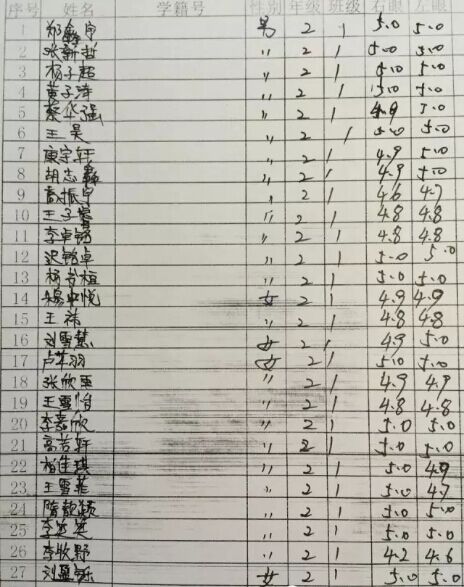 序号 姓名 学籍号 性别 年级 班级 右眼 左眼
1 郑鑫宇 男 2 1 5.0 5.0
2 张新哲 〃 2 1 5.0 5.0
3 杨子超 〃 2 1 5.0 5.0
4 黄子涛 〃 2 1 5.0 5.0
5 蔡华强 〃 2 1 4.9 5.0
6 王昊 〃 2 1 5.0 5.0
7 康宇轩 〃 2 1 4.9 5.0
8 胡志鑫 〃 2 1 4.9 5.0
9 高振宇 〃 2 1 4.6 4.7
10 王子睿 〃 2 1 4.8 4.8
11 李卓锡 〃 2 1 4.8 4.8
12 卓 〃 2 1 5.0 5.0
13 杨 〃 2 1 5.0 5.0
14 悦 女 2 1 4.9 4.9
15 王祎 〃 2 1 4.8 4.8
16 刘雪慧 女 2 1 4.9 5.0
17 卢芊羽 女 2 1 5.0 5.0
18 张欣 〃 2 1 4.9 4.9
19 王雪怡 〃 2 1 4.8 4.8
20 李嘉欣 〃 2 1 5.0 5.0
21 高若轩 〃 2 1 5.0 5.0
22 佳琪 〃 2 1 5.0 4.9
23 王雪菲 〃 2 1 5.0 4.7
24 隋歆颖 〃 2 1 5.0 5.0
25 李英 〃 2 1 5.0 5.0
26 李牧野 〃 2 1 4.2 4.6
27 刘 女 2 1 5.0 5.0